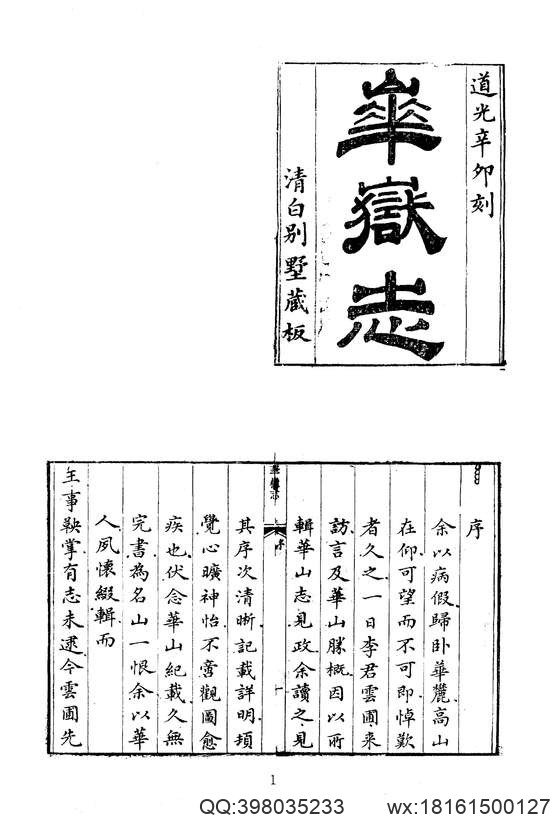 道光辛卯刻
華嶽志
清白别墅藏板
序
余以病假歸卧華麓高山
在仰可望而不可即悼歎
者久之一日李君雲圃来
訪言及華山勝概因以所
輯華山志見政余讀之見
華嶽志
序
一
其序次清晰記載詳明頓
覺心曠神怡不啻觀圖愈
疾也伏念華山紀載久無
完書為名山一恨余以華
人夙懷綴輯而
王事鞅掌有志未逮今雲圃先
1
QQ:398035233
wx:18161500127